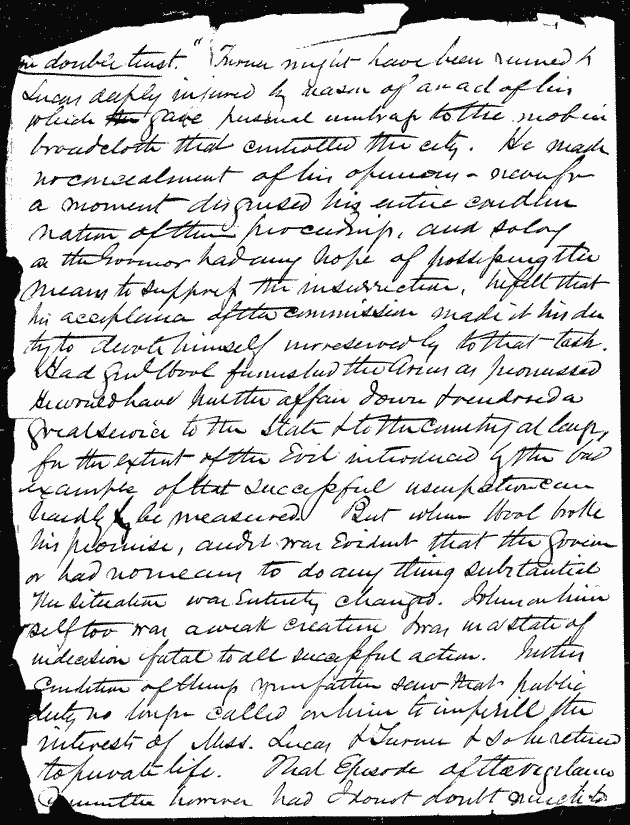 in double trust." Turner might have been ruined &
Lucas deeply injured by reason of an act of his
which gave personal umbrage to the mob in
broadcloth that controlled the city. He made
no concealment of his opinions - never for
a moment disguised his entire condem
nation of their proceedings, and so long
as the Governor had any hope of possessing the
means to suppress the insurrection, he felt that
his acceptance of the commission made it his du
ty to devote himself unreservedly to that task.
Had Genl Wool furnished the Arms as promised
he would have put the affair down & rendered a
great service to the State & to the country at large,
for the extent of the Evil introduced by the bad
example of that successful usurpation can
hardly be measured. But when Wool broke
his promise, and it was Evident that the Govern
or had no means to do any thing substantial
the situation was Entirely changed. Johnson him
self too was a weak creature & was in a state of
indecision fatal to all successful action. In this
Condition of things your father saw that public
duty no longer called on him to imperill the
interests of Mess. Lucas & Turner & so he retired
to private life. That Episode of the vigilance
Committee however had I do not doubt much to